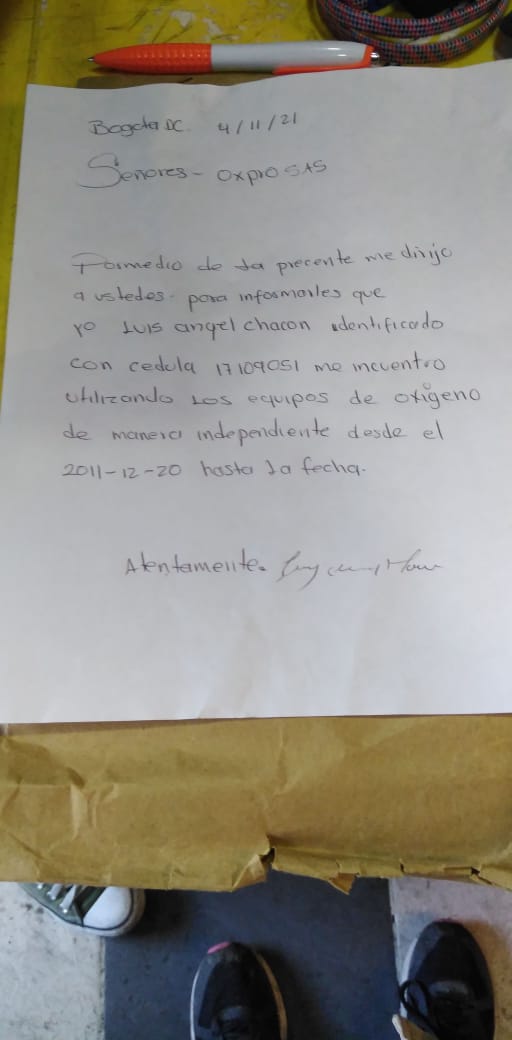 Bogota DC. 4/11/21
Señores - oxpro SAS
Pormedio de la precente me dirijo
a ustedes. para informarles que
yo Luis angel chacon identificado
con cedula 17109051 me incuentro
utilizando Los equipos de oxigeno
de manera independiente desde el
2011-12-20 hasta la fecha.
Atentamente.